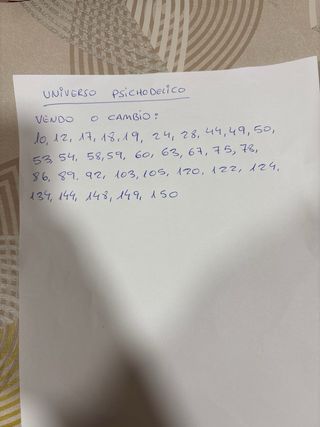 UNIVERSO PSICHODELICO
VENDO O CAMBIO:
10, 12, 17, 18, 19, 24, 28, 44, 49, 50,
53, 54, 58, 59, 60, 63, 67, 75, 78,
86, 89. 92, 103, 105, 120, 122, 124,
134, 144, 148, 149, 150